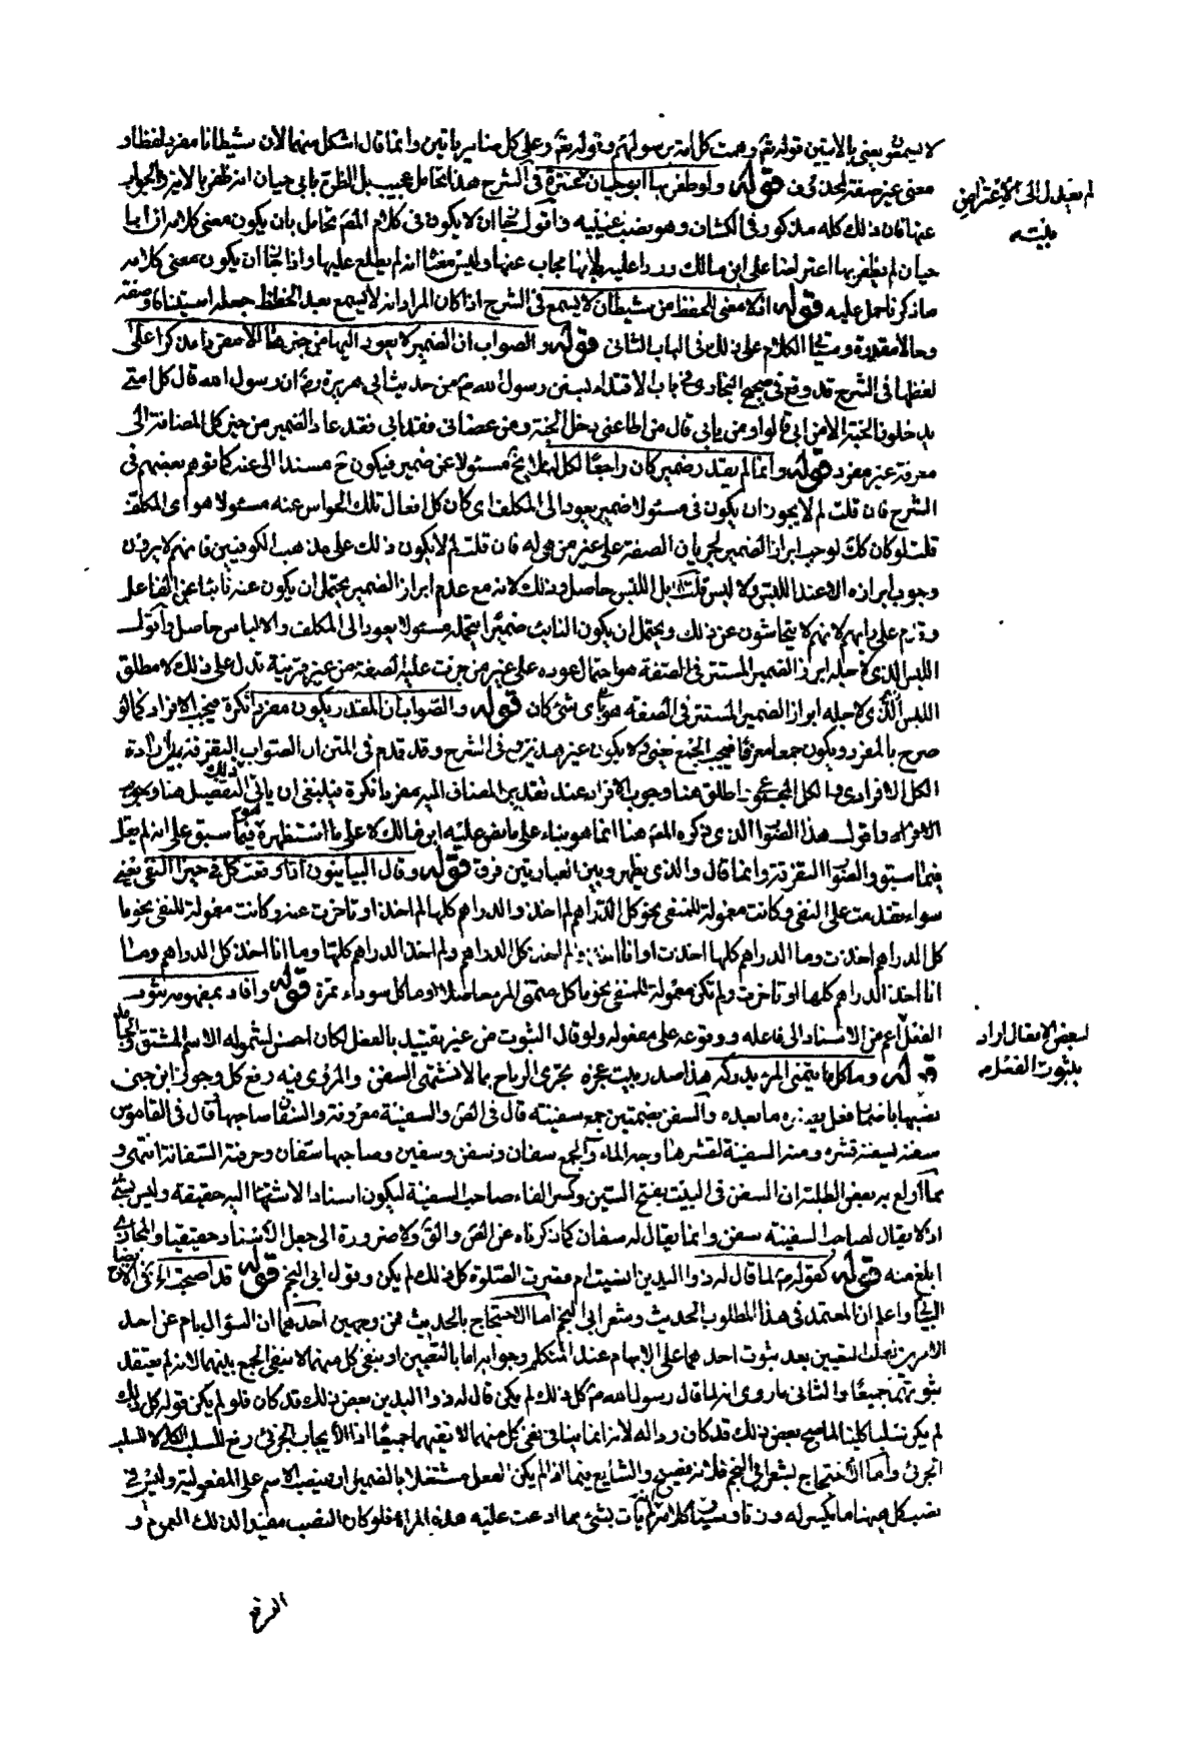 لا يسمعون يعني بالآيتين قوله تع وهمت كل امة برسولهم وقوله تع وعلى كل ضامر ياتين وانما قال اشكل منهما لان شيطانا مفرد لفظا و
معنى غير صفة لمحذوف قوله ولو ظفر بها ابو حيان عنترة في الشرح هذا تحامل عجيب بل الظن بابي حيان انه ظفر بالآية والجواب
عنها فان ذلك كله مذكور في الكشاف وهو نصب عينيه واقول يجاب ان لا يكون في كلام المص تحامل بان يكون معنى كلامه ان ابا
حيان لم يظفر بها اعتراضا على ابن مالك وردا عليه لانها مجاب عنها وليس معناه انه لم يطلع عليها واذا يجاب ان يكون معنى كلامه
ما ذكرنا حمل عليه قوله اذ لا معنى للحفظ من شيطان لا يسمع في الشرح اذا كان المراد انه لا يسمع بعد الحفظ جعله استينافا وصفة
وحالا مقدرة وسياتي الكلام على ذلك في الباب الثاني قوله والصواب ان الضمير لا يعود اليها من خبرها الا مفردا مذكرا على
لفظها في الشرح قد وقع في صحيح البخاري في باب الاقتداء بسنن رسول الله صم من حديث ابي هريرة رض ان رسول الله قال كل امتي
يدخلون الجنة الا من ابى قالوا ومن يابى قال من اطاعني دخل الجنة ومن عصاني فقد ابى فقد عاد الضمير من خبر كل المضافة الى
معرفة غير مفرد قوله وانما لم يقدر ضمير كان راجعا لكل لئلا يخ مسئولا عن ضمير فيكون ح مسندا الى عنه كما توهم بعضهم في
الشرح فان قلت لم لا يجوز ان يكون في مسئولا ضمير يعود الى المكلف اي كان كل افعال تلك الحواس عنه مسئولا هو اي المكلف
قلت لو كان كك لوجب ابراز الضمير لجريان الصفة على غير من هو له فان قلت لم لا يكون ذلك على مذهب الكوفيين فانهم لا يرون
وجوب ابرازه الا عند اللبس ولا لبس قلت بل اللبس حاصل وذلك لانه مع عدم ابراز الضمير يحتمل ان يكون عنه نائبا عن الفاعل
وقدم على رايهم لانهم لا يتحاشون عن ذلك ويحتمل ان يكون النائب ضميرا يتحمله مسئولا يعود الى المكلف والالباس حاصل واقول
اللبس الذي لاجله ابرز الضمير المستتر في الصفة هو احتمال عوده على غير من جرت عليه الصفة من غير قرينة تدل على ذلك لا مطلق
اللبس الذي لاجله ابراز الضمير المستتر في الصفة هو باي شئ كان قوله والصواب ان المقدر يكون مفردا نكرة فيجب الافراد كما لو
صرح بالمفرد ويكون جمعا معرفا فيجب الجمع في الشرح وقد قدم في المتن ان الصواب التفرقة بين ارادة
الكل الافرادي والكل المجموعي اطلق هنا وجوب الافراد عند تقدير المضاف اليه مفردا نكرة فينبغي ان ياتي ذلك التفصيل هنا ويجوز
الافراد واقول هذا الصواب الذي ذكره المص هنا انما هو بناء على ما نص عليه ابن مالك لا على ما استظهره هو فيما سبق على انه لم يقل
فيما سبق والصواب التفرقة وانما قال والذي يظهر وبين العبارتين فرق قوله وقال البيانيون اذا وقعت كل في حيز النفي يعني
سواء تقدمت على النفي وكانت معمولة للمنفي نحو كل الدراهم لم اخذ والدراهم كلها لم اخذ او تاخرت عنه وكانت معمولة للنفي نحو ما
كل الدراهم اخذت وما الدراهم كلها اخذت او انا اخذ ولم اخذ كل الدراهم ولم اخذ الدراهم كلها وما انا اخذ كل الدراهم وما
انا اخذ الدراهم كلها او تاخرت ولم تكن معمولة للمنفي نحو ما كل متمنى المرء حاصلا وما كل سوداء تمرة قوله وافاد بمفهومه ثبوت
الفعل اعم من الاسناد الى فاعله ووقوعه على مفعوله ولو قال الثبوت من غير تقييد بالفعل لكان احسن لشموله الاسم المشتق والجامد
قوله وما كل ما يتمنى المرء يدركه هذا صدر بيت عجزه تجرى الرياح بما لا تشتهى السفن والمروي فيه رفع كل وجوز ابن جني
نصبها باضمار فعل يفسره ما بعده والسفن بضمتين جمع سفينة قال في الص والسفينة معروفة والسفان صاحبها قال في القاموس
سفنه يسفنه قشره ومنه السفينة لقشرها وجه الماء والجمع سفائن وسفن وسفين وصاحبها سفان وحرفته السفانة انتهى و
مما اولع به بعض الطلبة ان السفن في البيت بفتح السين وكسر الفاء صاحب السفينة ليكون اسناد الاشتهاء اليه حقيقة وليس بشئ
اذ لا يقال لصاحب السفينة سفن وانما يقال له سفان كما ذكرناه عن الص والق ولا ضرورة الى جعل الاسناد حقيقيا والمجازي
ابلغ منه قوله كقوله صم لما قال له ذو اليدين انسيت ام قصرت الصلوة كل ذلك لم يكن وقول ابي النجم قوله قد اصبحت ام الخيار
البيت واعلم ان المعتمد في هذا المطلوب الحديث وشعر ابي النجم اما الاحتجاج بالحديث فمن وجهين احدهما ان السؤال بام عن احد
الامرين لطلب التعيين بعد ثبوت احدهما على الابهام عند المتكلم وجوابه اما بالتعيين او بنفي كل منهما لا بنفي الجمع بينهما لانه لم يعتقد
ثبوتهما جميعا والثاني ما روي انه لما قال رسول الله صم كل ذلك لم يكن قال له ذو اليدين بعض ذلك قد كان فلو لم يكن قوله كل ذلك
لم يكن سلبا كليا لما صح بعض ذلك قد كان ردا له لانه انما ينافي نفي كل منهما لا نفيهما جميعا اذ الايجاب الجزئي رفع للسلب الكلي لا للسلب
الجزئي واما الاحتجاج بشعر ابي النجم فلانه فصيح والشايع فيما اذا لم يكن الفعل مشتغلا بالضمير ان ينصب الاسم على المفعولية وليس في
نصب كل ههنا ما يكسر له وزنا وسياق كلامه انه لم يات بشئ مما ادعت عليه هذه المراة فلو كان النصب مفيدا لذلك العموم و
الرفع
لم يقل دل الى الاعتراض
بليته
لبعض الافعال اراد
بثبوت الفعل